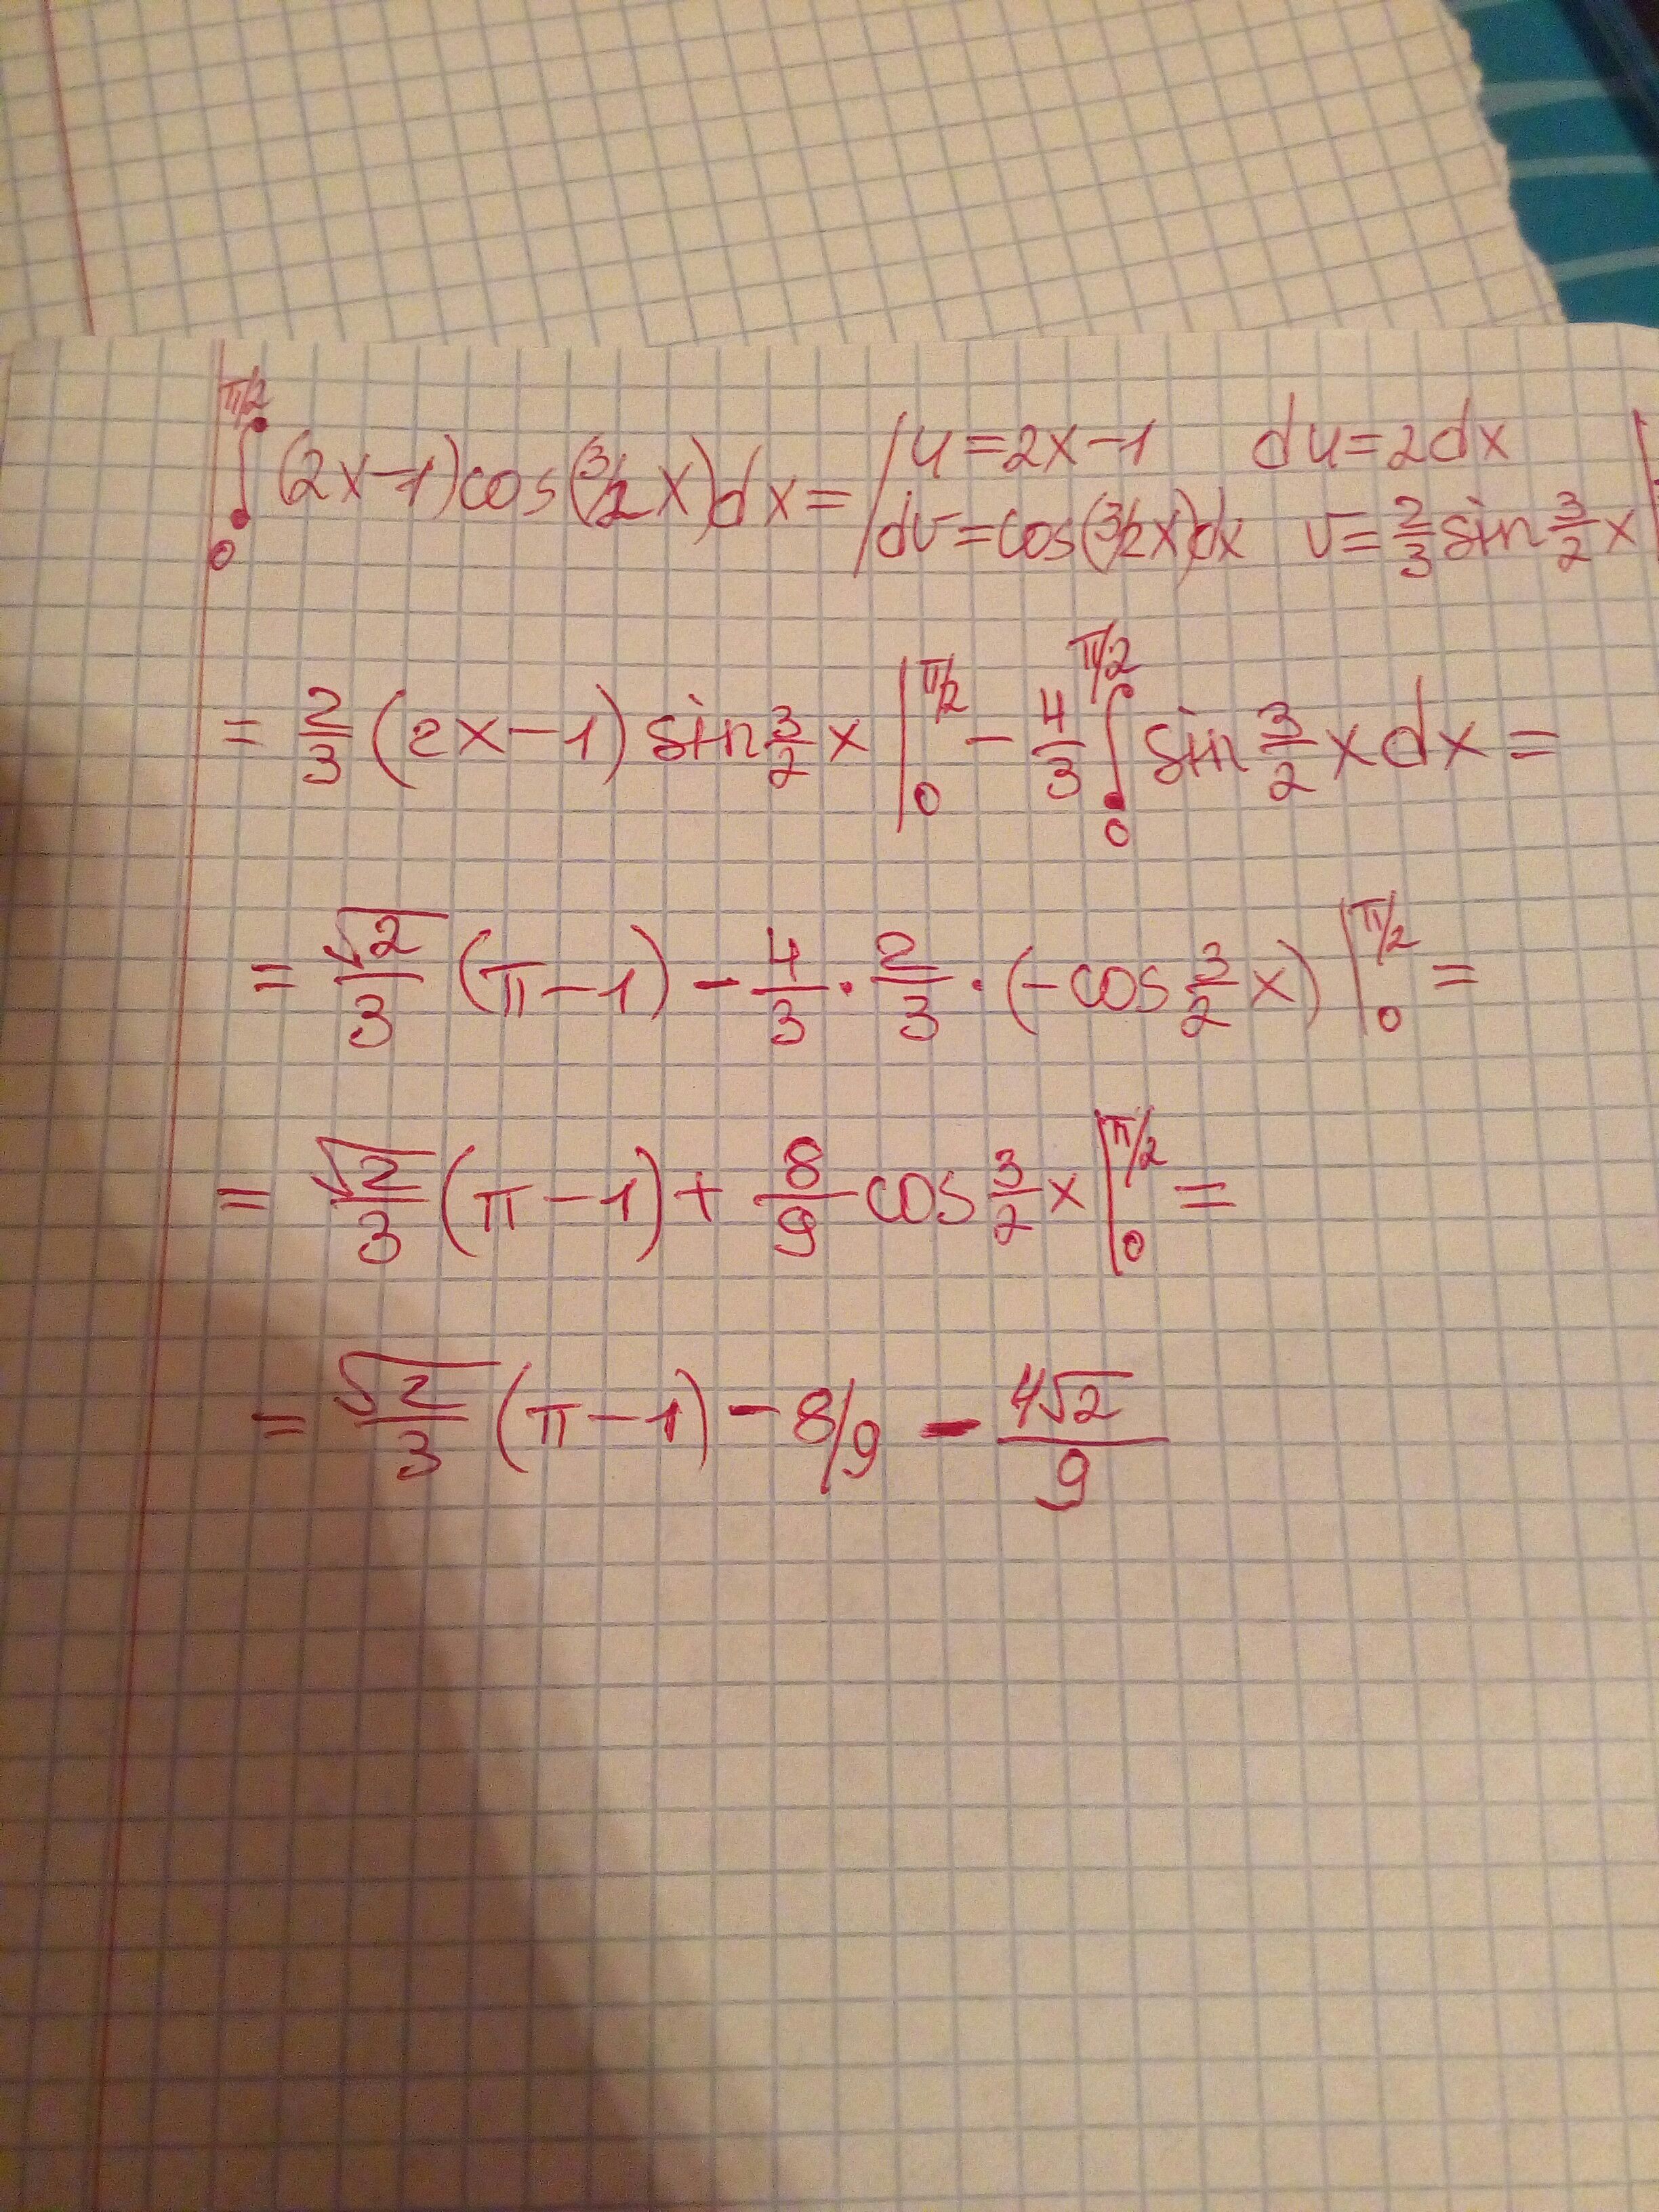 ∫₀^{π/2} (2x-1)cos(3/2x)dx = | u=2x-1 du=2dx
dv=cos(3/2x)dx v=2/3 sin 3/2 x |
= 2/3 (2x-1) sin 3/2 x |₀^{π/2} - 4/3 ∫₀^{π/2} sin 3/2 x dx =
= √2/3 (π-1) - 4/3 · 2/3 · (-cos 3/2 x) |₀^{π/2} =
= √2/3 (π-1) + 8/9 cos 3/2 x |₀^{π/2} =
= √2/3 (π-1) - 8/9 - 4√2/9